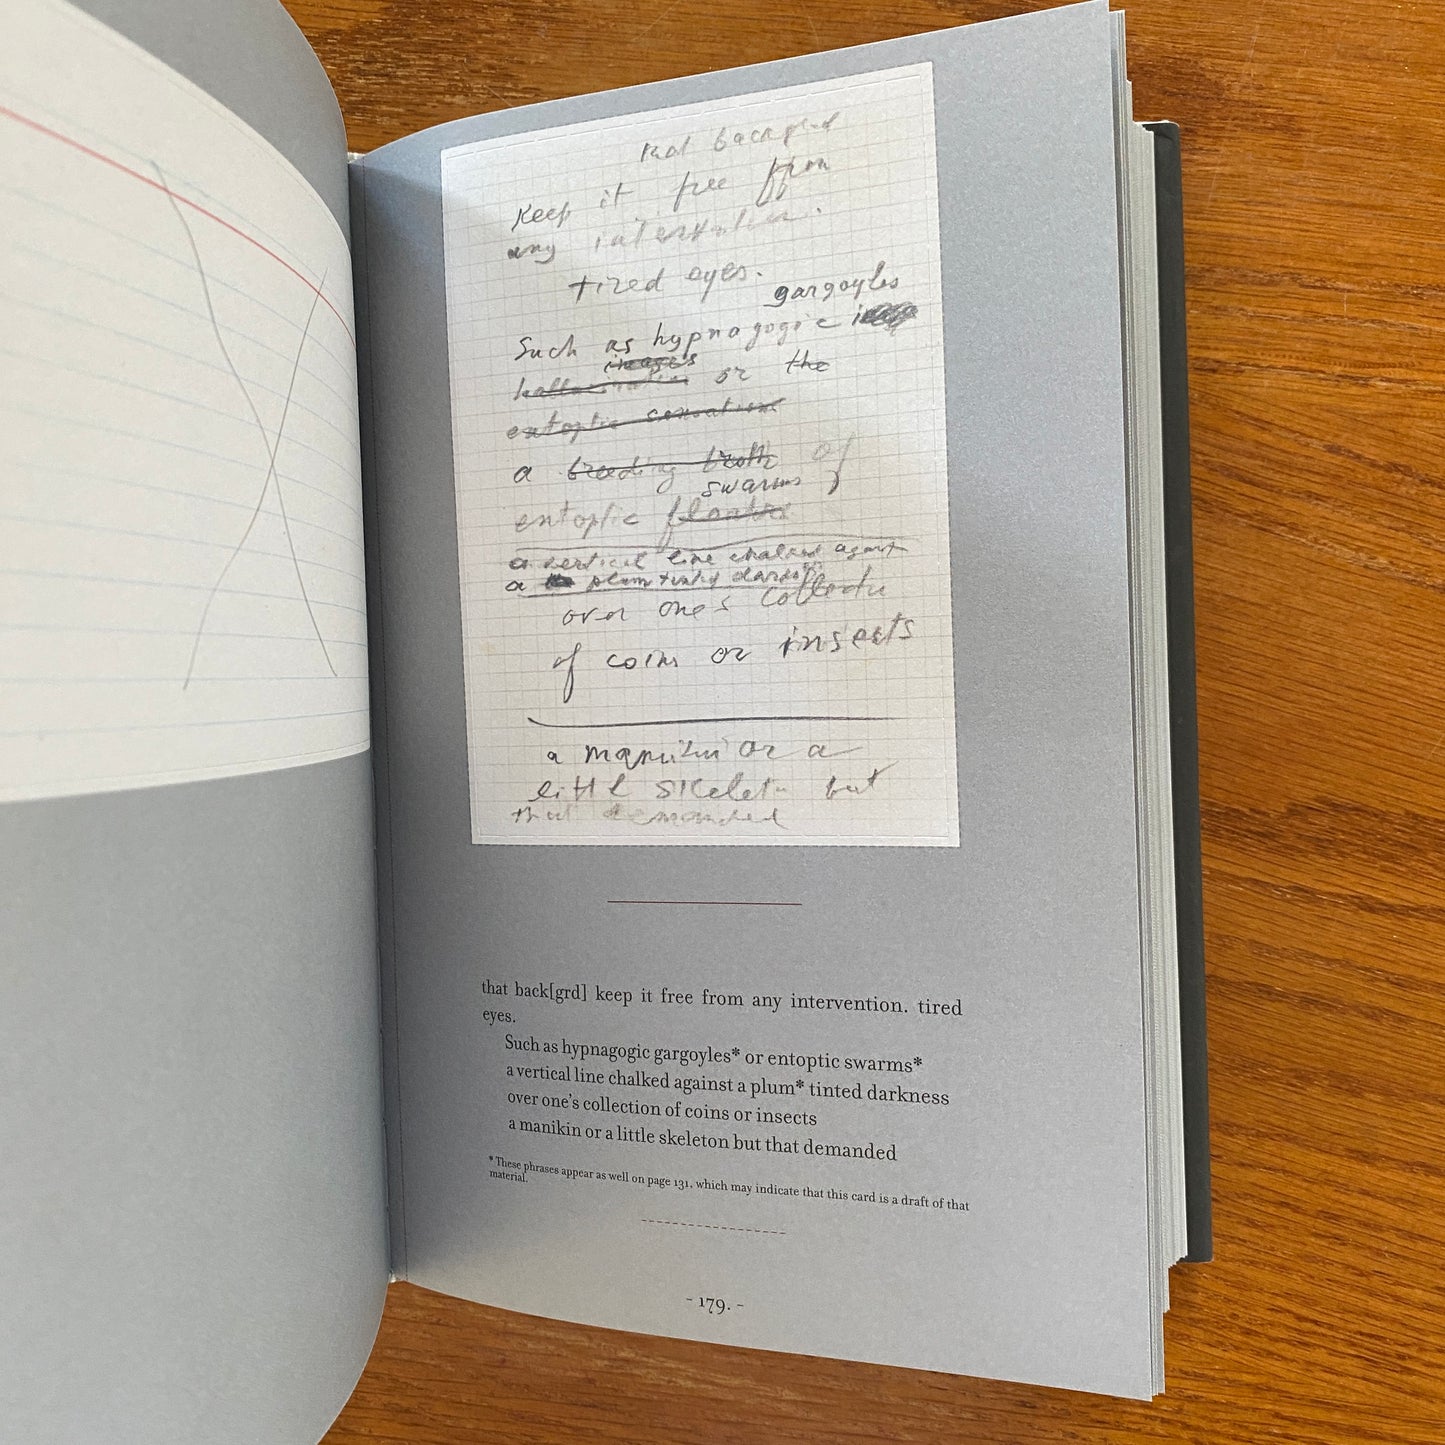 that backgrd
Keep it free from
any intervention.
tired eyes.
gargoyles
Such as hypnagogic
images
hallucination or the
entoptic sensations
a breeding broth of
swarms
entoptic
a vertical line chalked against
a plum tinted darkness
over one's collection
of coins or insects
a manikin or a
little skeleton but
that demanded
that back[grd] keep it free from any intervention. tired
eyes.
Such as hypnagogic gargoyles* or entoptic swarms*
a vertical line chalked against a plum* tinted darkness
over one's collection of coins or insects
a manikin or a little skeleton but that demanded
* These phrases appear as well on page 131, which may indicate that this card is a draft of that
material.
- 179. -